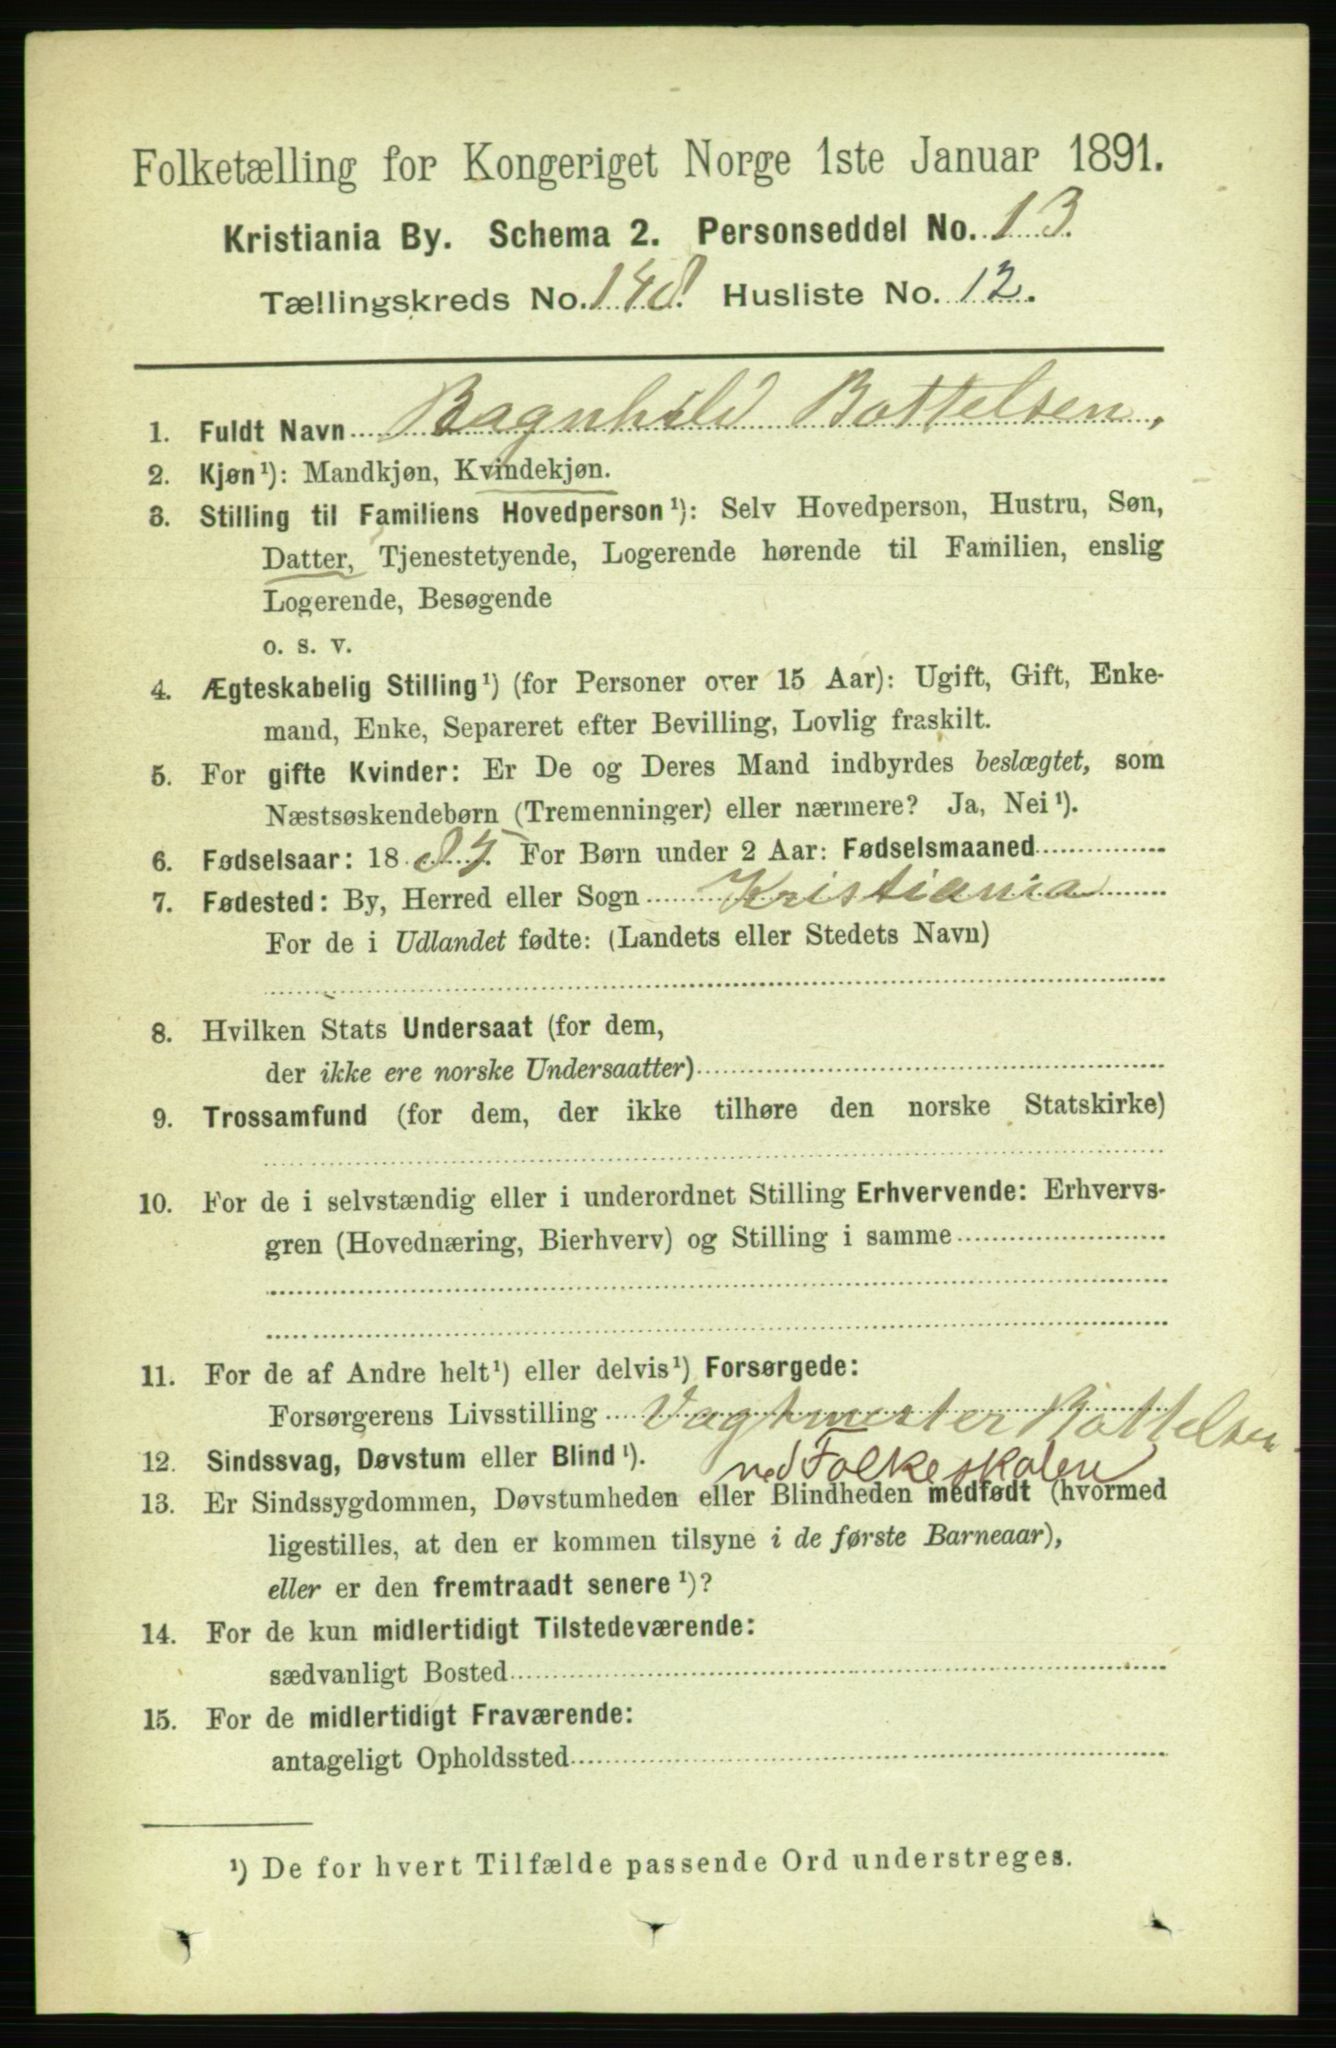 Folketælling for Kongeriget Norge 1ste Januar 1891.
Kristiania By. Schema 2. Personseddel No. 13.
Tællingskreds No. 148. Husliste No. 12.
1. Fuldt Navn Ragnhild Bottelsen,
2. Kjøn¹): Mandkjøn, Kvindekjøn.
3. Stilling til Familiens Hovedperson¹): Selv Hovedperson, Hustru, Søn,
Datter, Tjenestetyende, Logerende hørende til Familien, enslig
Logerende, Besøgende
o. s. v.
4. Ægteskabelig Stilling¹) (for Personer over 15 Aar): Ugift, Gift, Enke-
mand, Enke, Separeret efter Bevilling, Lovlig fraskilt.
5. For gifte Kvinder: Er De og Deres Mand indbyrdes beslægtet, som
Næstsøskendebørn (Tremenninger) eller nærmere? Ja, Nei¹).
6. Fødselsaar: 18 For Børn under 2 Aar: Fødselsmaaned
7. Fødested: By, Herred eller Sogn Kristiania
For de i Udlandet fødte: (Landets eller Stedets Navn)
8. Hvilken Stats Undersaat (for dem,
der ikke ere norske Undersaatter)
9. Trossamfund (for dem, der ikke tilhøre den norske Statskirke)
10. For de i selvstændig eller i underordnet Stilling Erhvervende: Erhvervs-
gren (Hovednæring, Bierhverv) og Stilling i samme
11. For de af Andre helt¹) eller delvis¹) Forsørgede:
Forsørgerens Livsstilling Vagtmester Bottelsen
12. Sindssvag, Døvstum eller Blind¹). ved Folkeskolen
13. Er Sindssygdommen, Døvstumheden eller Blindheden medfødt (hvormed
ligestilles, at den er kommen tilsyne i de første Barneaar),
eller er den fremtraadt senere¹)?
14. For de kun midlertidigt Tilstedeværende:
sædvanligt Bosted
15. For de midlertidigt Fraværende:
antageligt Opholdssted
¹) De for hvert Tilfælde passende Ord understreges.